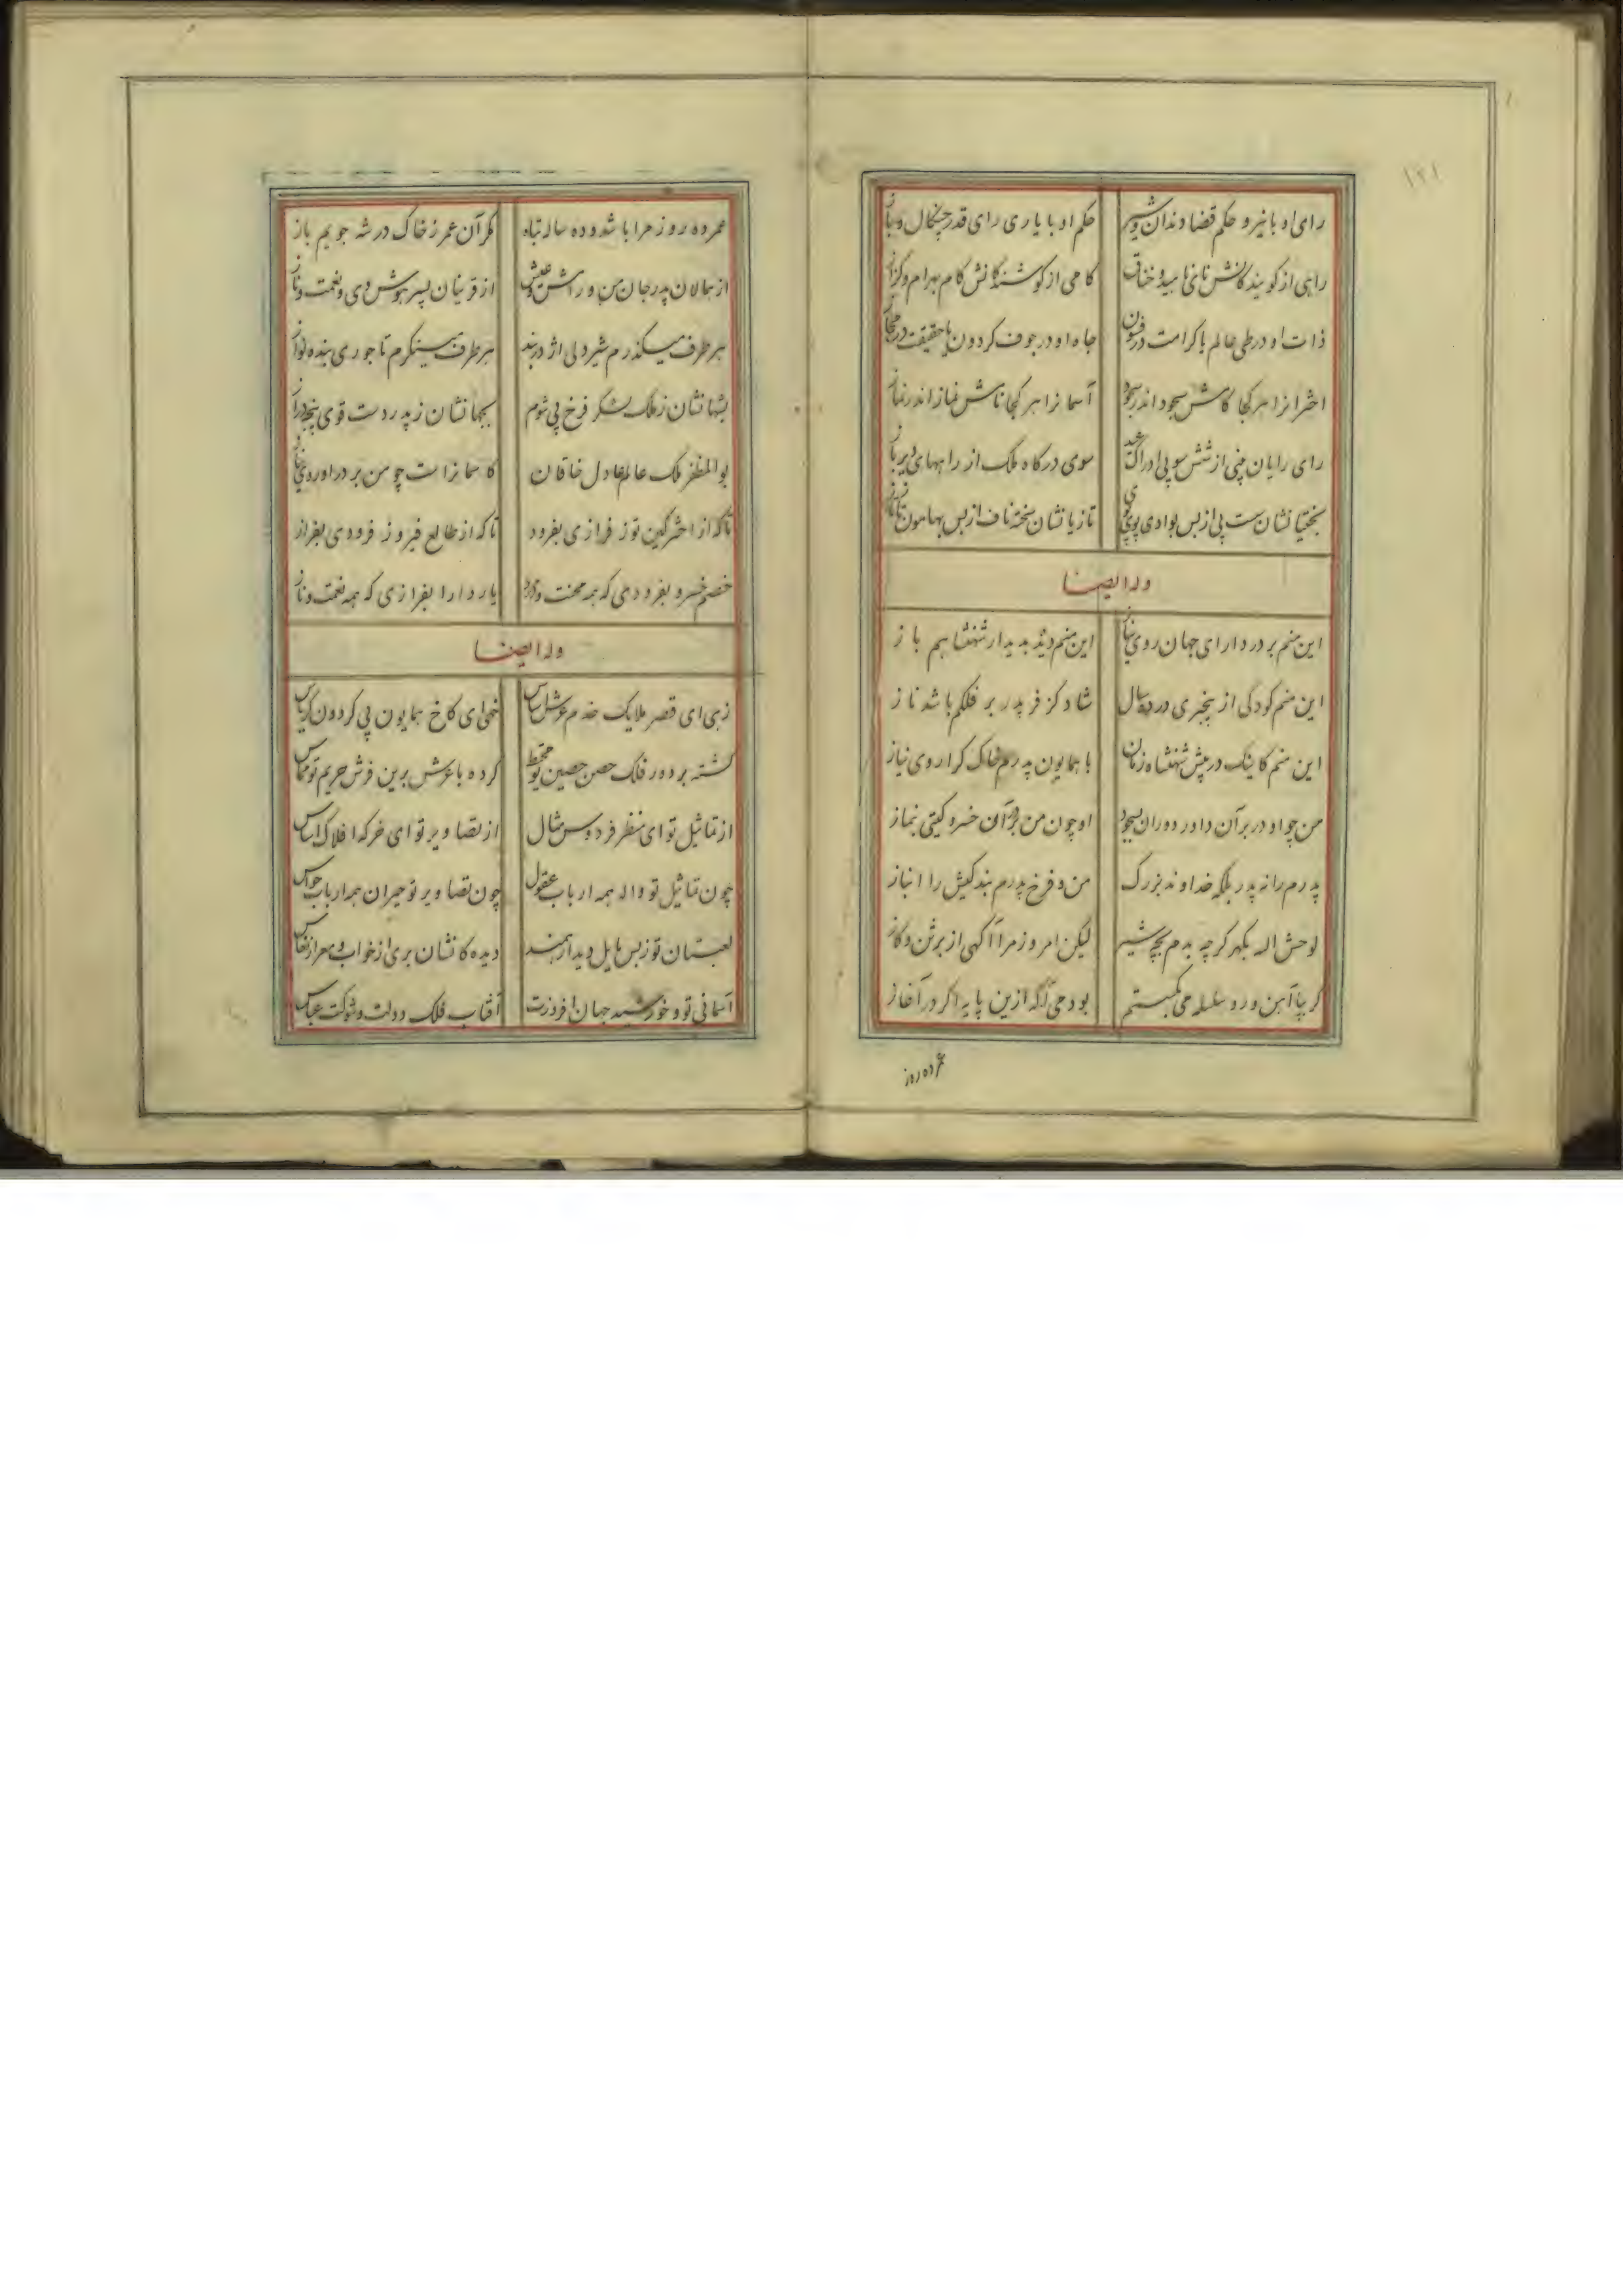 ۱۲۱
رای او با نیرو حکم قضا دندان و شیر
حکم او با یاری رای قدر چنکال و باز
راهی از کویندکانش نای ناهید و خناق
کامی از کوشندکانش کام بهرام و کزاز
ذات او در طی عالم با کرامت در فسون
جاه او در جوف کردون با حقیقت در مجاز
اخترانرا هر کجا کاخش سجود اندر سجود
آسمانرا هر کجا نامش نماز اندر نماز
رای رایان منی از شش سو پی ادراک
سوی درکاه ملک از راههای دیر باز
بختیانشان سست پی از بس بوادی پوی پوی
تازیانشان سخته ناف از بس بهامون تاز تاز
وله ایضا
این منم بر در دارای جهان روی نیاز
این منم دیده بدیدار شهنشاهم باز
این منم کودکی از بیخبری در ده سال
شاد کز فر پدر بر فلکم باشد ناز
این منم کاینک در پیش شهنشاه زمان
با همایون پدرم خاک کرا روی نیاز
من چو او در بر آن داور دوران بسجود
او چون من در بر آن خسرو کیتی بنماز
پدرم را نه پدر بلکه خداوند بزرک
من و فرخ پدرم بندکیش را انباز
لوحش اله بکهر کرچه بدم بچه شیر
لیکن امروز مرا آکهی از برثن و کاز
کر بپا آهن و رو سلسله می بکسستم
بودمی آکه ازین پایه اکر در آغاز
عمر ده روز
عمر ده روز مرا باشد و ده ساله تباه
مکر آن عمر ز خاک در شه جویم باز
از همالان پدر جان من و رامش و عیش
از قرینان پسر هوش وی و نعمت و ناز
هر طرف میکذرم شیردلی اژدربند
هر طرف مینکرم تاجوری بنده نواز
بشهانشان ز ملک لشکر فرخ پی شوم
بجهانشان ز پدر دست قوی پنجه دراز
بوالمظفر ملک عالم عادل خاقان
کاسمانراست چو من بر در او روی نیاز
تا که از اختر کین توز فرازی بفرود
تا که از طالع فیروز فرودی بفراز
خصم خسرو بفرودی که همه محنت و درد
یار دارا بفرازی که همه نعمت و ناز
وله ایضا
زهی ای قصر ملایک خدم عرش لباس
خهی ای کاخ همایون پی کردون کریاس
کشته بر دور فلک حصن حصین تو محیط
کرده با عرش برین فرش حریم تو مماس
از تماثیل تو ای منظر فردوس مثال
از تصاویر تو ای خرکه افلاک اساس
چون تماثیل تو واله همه ارباب عقول
چون تصاویر تو حیران همه ارباب حواس
لعبتان تو ز بس مایل دیدار همند
دیده کانشان بری از خواب و مبرا ز نعاس
آسمانی تو و خورشید جهان افروزت
آفتاب فلک دولت و شوکت عباس